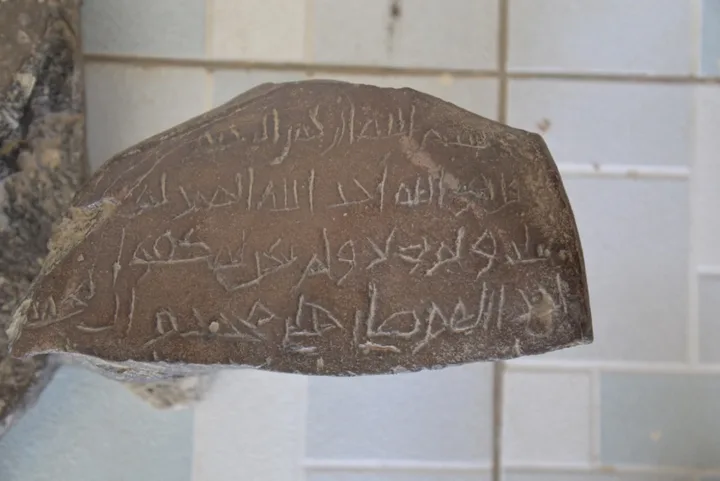 بسم الله الرحمن الرحيم
قل هو الله احد الله الصمد لم
يلد ولم يولد ولم يكن له كفوا ا
حد اللهم صل على محمد